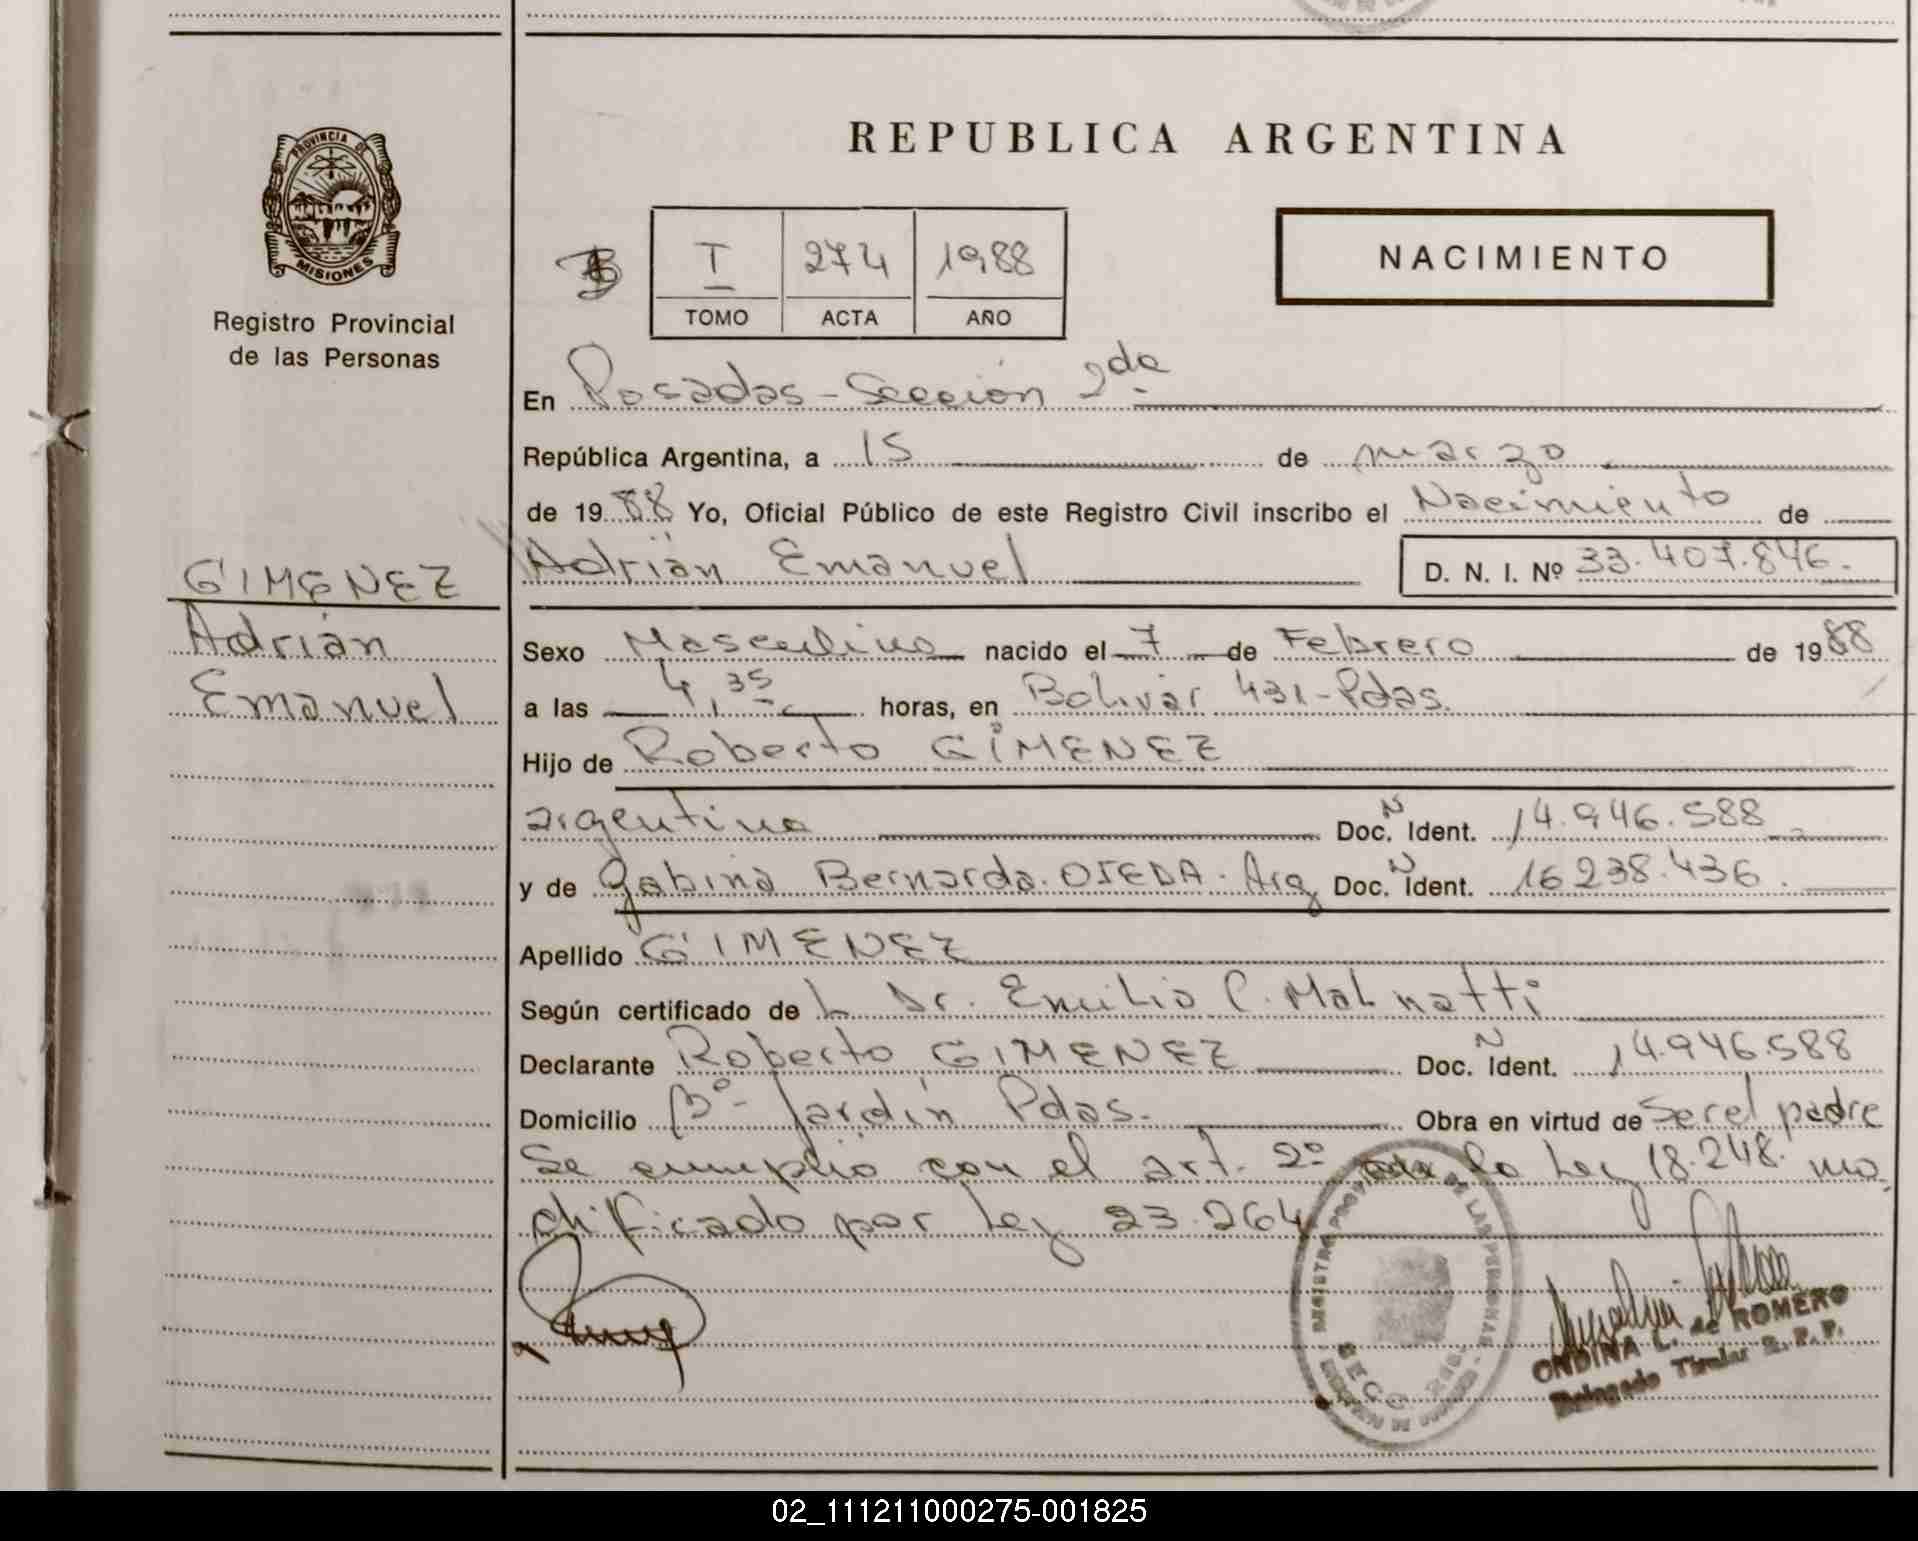 REPUBLICA ARGENTINA
PROVINCIA DE
MISIONES
Registro Provincial
de las Personas
T 274 1988
TOMO ACTA AÑO
NACIMIENTO
En Posadas - Sección 2da
República Argentina, a 15 de marzo
de 1988 Yo, Oficial Público de este Registro Civil inscribo el Nacimiento de
Adrián Emanuel D. N. I. Nº 33.407.846.
GIMENEZ
Adrián
Emanuel
Sexo Masculino nacido el 7 de Febrero de 1988
a las 4,35 horas, en Bolivar 431 - Pdas.
Hijo de Roberto GIMENEZ
argentino Doc. N Ident. 14.946.588
y de Gabina Bernarda OJEDA. Arg Doc. N Ident. 16 238.436.
Apellido GIMENEZ
Según certificado de L Dr. Emilio C. Malnatti
Declarante Roberto GIMENEZ Doc. N Ident. 14.946.588
Domicilio Bº - Jardín Pdas. Obra en virtud de Ser el padre
Se cumplió con el art. 2º de la Ley 18.248. mo
dificado por Ley 23.264
REGISTRO PROVINCIAL DE LAS PERSONAS
SECC
ONDINA L. de ROMERO
Delegado Titular R. P. P.
02_111211000275-001825